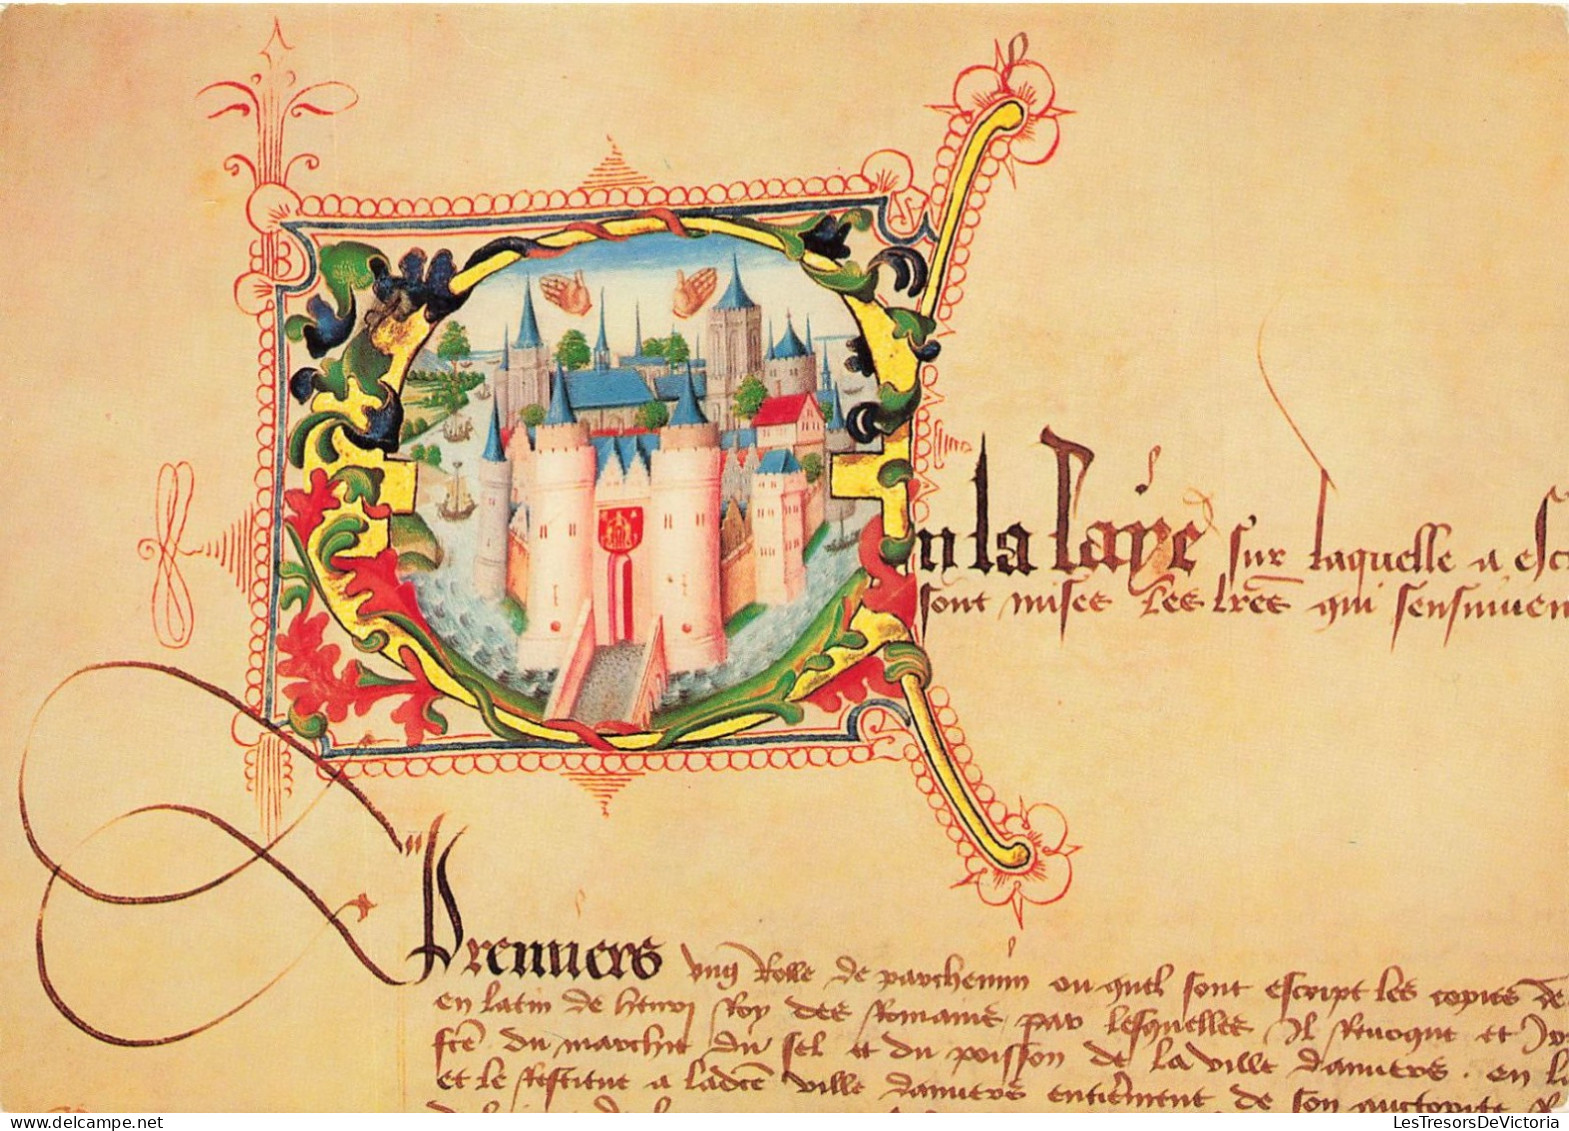 En la laye sur laquelle a esc
sont mises les lrēs qui sensuiuen
Premiers vng Rolle de parchemin ou quel sont escript les copies de
en latin de henri Roy des Romains par lesquelles Il Reuoque et
du marchie du sel et du poisson de la ville danuers . en
et le Restitue a ladcē ville danuers entierment de son auctorite
LesTresorsDeVictoria